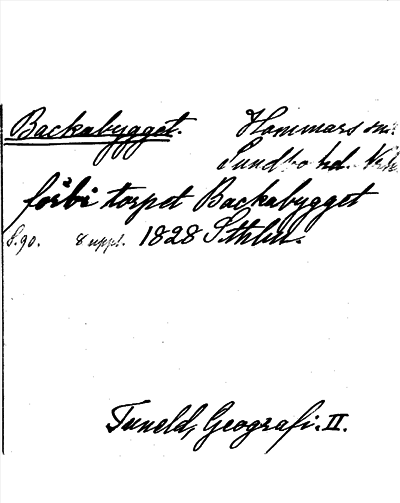 Backabygget. Hammars sn.
Sundbo hd.
förbi torpet Backabygget
S. 90. 8 uppl. 1828 Sthlm.
Tuneld, Geografi. II.